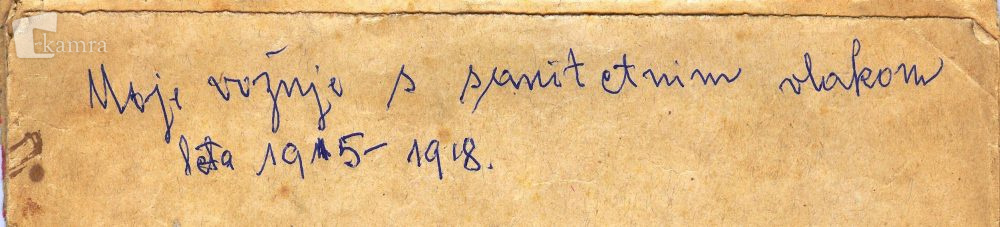 kamra
Moje vožnje s sanitetnim vlakom
leta 1915-1918.